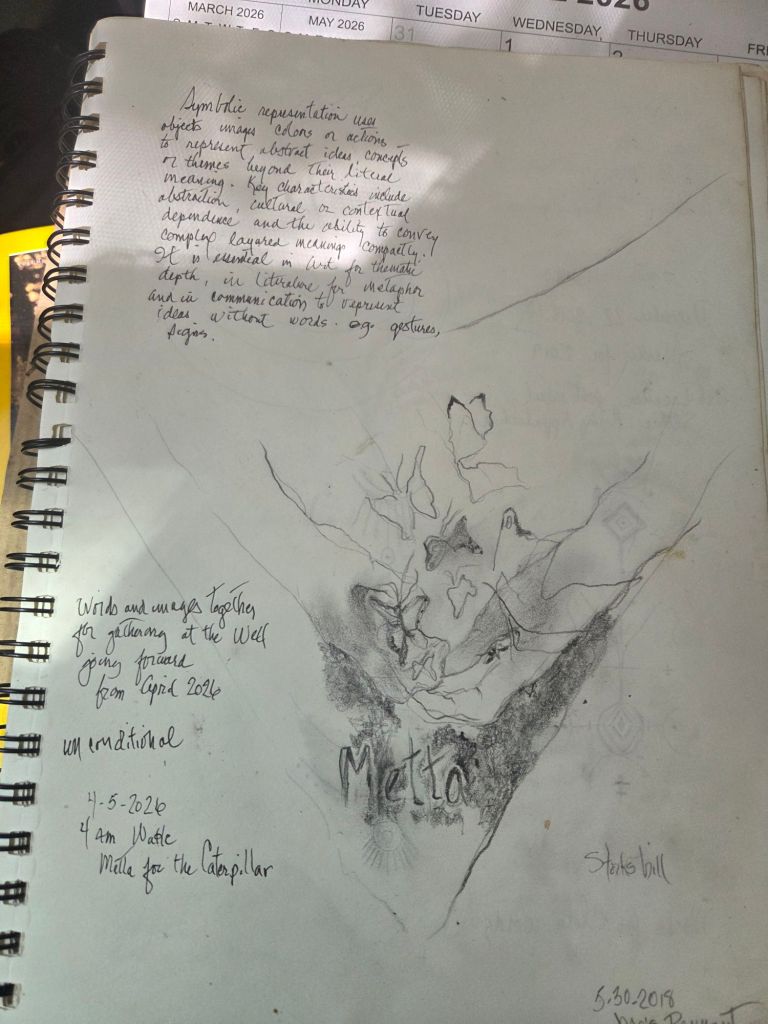 2026
MARCH 2026
MONDAY
MAY 2026
TUESDAY
WEDNESDAY
THURSDAY
FRI
31
1
2
Symbolic representation uses
objects images colors or actions
to represent abstract ideas concepts
or themes beyond their literal
meaning. Key characteristics include
abstraction, cultural or contextual
dependence and the ability to convey
complex layared meanings compactly.
It is essential in Art for thematic
depth, in literature for metaphor
and in communication to represent
ideas without words. eg. gestures,
signs.
Words and images together
for gathering at the Well
going forward
from April 2026
unconditional
Metta
4-5-2026
4 Am Wake
Metta for the Caterpillar
bill
5-30-2018